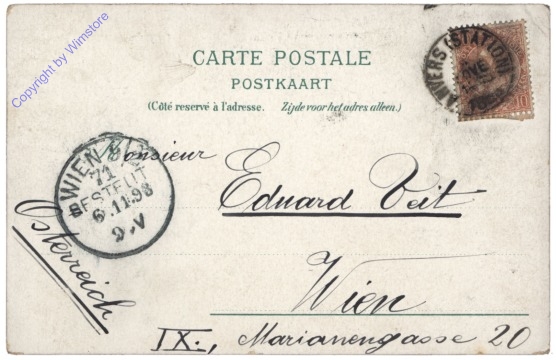 Copyright by Wimstore
CARTE POSTALE
POSTKAART
(Côté reservé à l'adresse. Zijde voor het adres alleen.)
ANVERS (STATION)
10
WIEN
71
BESTELLT
6.11.98
9.V
Monsieur
Eduard Veit
Wien
IX., Marianengasse 20
Österreich